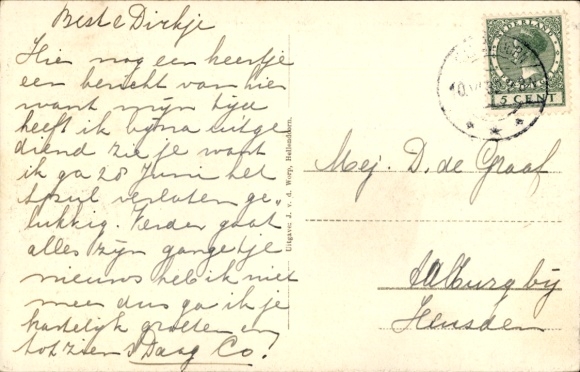 Beste Dirkje
Hier nog een keertje
een bericht van hier
want mijn tijd
heeft ik bijna uitge
diend zie je want
ik ga 28 Juni het
spul verlaten ge„
lukkig. Verder gaat
alles zijn gangetje
nieuws heb ik niet
meer dus ga ik je
hartelijk groeten en
tot ziens Daag Co!
Uitgave: J. v. d. Worp, Hellendoorn.
NEDERLAND
5 CENT
Mej. D. de Graaf
Aalburg bij
Heusden